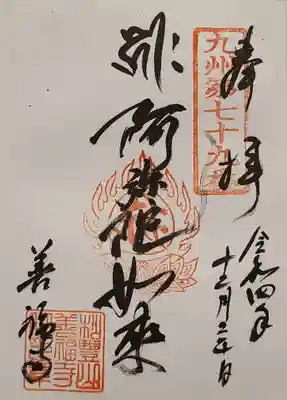 奉拝
九州第七十九
令和四年
十二月
阿弥陀如来
善福寺
善福寺